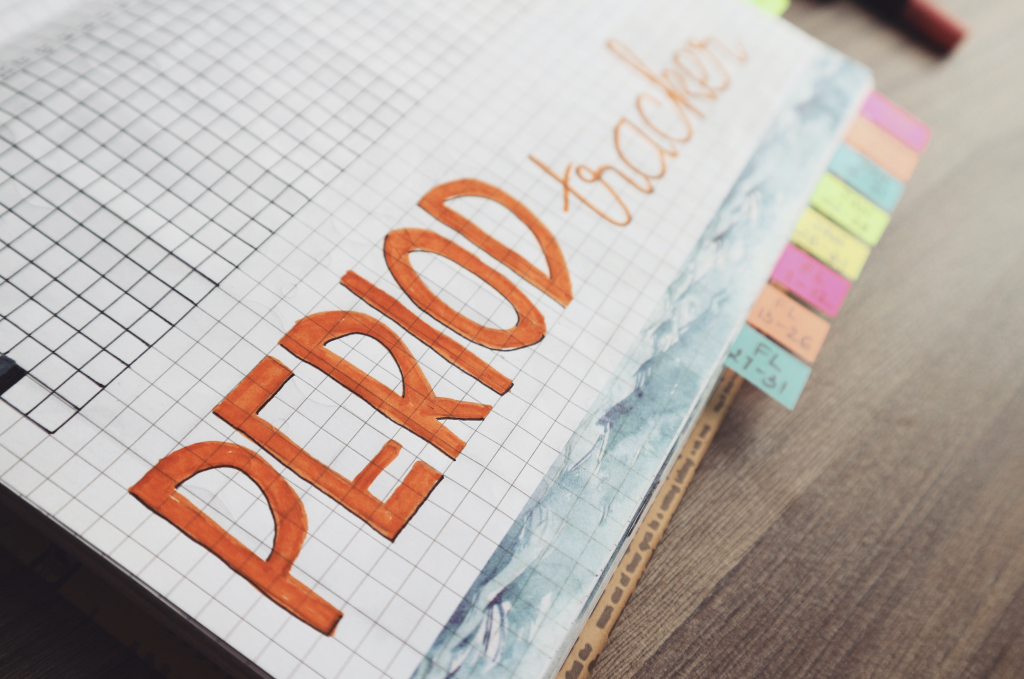 PERIOD tracker
L
13-26
FL
27-31